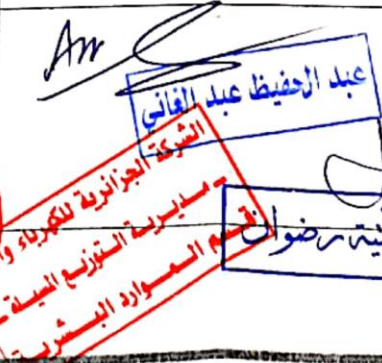 عبد الحفيظ عبد الغاني
الشركة الجزائرية للكهرباء وا
ـ مديرية التوزيع المسيلة ـ
قسم الموارد البشرية
رضوان